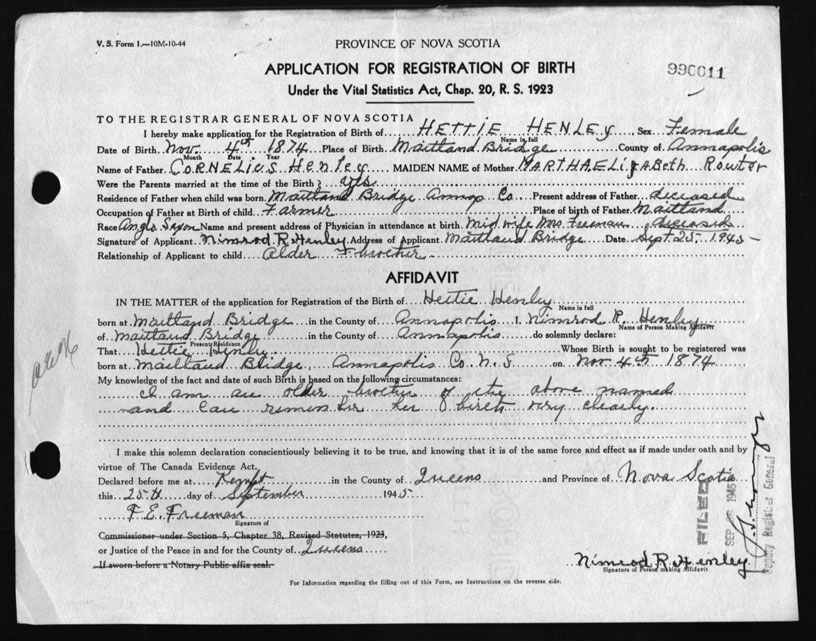 V. S. Form 1.—10M-10-44
PROVINCE OF NOVA SCOTIA
APPLICATION FOR REGISTRATION OF BIRTH
990011
Under the Vital Statistics Act, Chap. 20, R. S. 1923
TO THE REGISTRAR GENERAL OF NOVA SCOTIA
I hereby make application for the Registration of Birth of HETTIE HENLEY Sex Female
Name in full
Date of Birth Nov. 4th 1874 Place of Birth Maitland Bridge County of Annapolis
Month Date Year
Name of Father CORNELIUS Henley MAIDEN NAME of Mother MARTHA ELizABeth Rowter
Were the Parents married at the time of the Birth? Yes
Residence of Father when child was born Maitland Bridge Annap. Co Present address of Father deceased
Occupation of Father at Birth of child Farmer Place of birth of Father Maitland
Race Anglo Saxon Name and present address of Physician in attendance at birth Midwife Mrs. Freeman deceased
Signature of Applicant Nimrod R. Henley Address of Applicant Maitland Bridge Date Sept 25 1945
Relationship of Applicant to child Older Brother
AFFIDAVIT
IN THE MATTER of the application for Registration of the Birth of Hettie Henley
Name in full
born at Maitland Bridge in the County of Annapolis I, Nimrod R. Henley
Name of Person Making Affidavit
of Maitland Bridge in the County of Annapolis do solemnly declare:
Present Residence
That Hettie Henley Whose Birth is sought to be registered was
born at Maitland Bridge, Annapolis Co. N. S on Nov 4th 1874
My knowledge of the fact and date of such Birth is based on the following circumstances:
I am an older brother of the above named
and can remember her birth very clearly.
I make this solemn declaration conscientiously believing it to be true, and knowing that it is of the same force and effect as if made under oath and by
virtue of The Canada Evidence Act.
Declared before me at Kempt in the County of Queens and Province of Nova Scotia
this 25th day of September 1945
F. E. Freeman
Signature of
Commissioner under Section 5, Chapter 38, Revised Statutes, 1923,
or Justice of the Peace in and for the County of Queens
If sworn before a Notary Public affix seal.
Nimrod R. Henley
Signature of Person making Affidavit
For Information regarding the filling out of this Form, see Instructions on the reverse side.
FILED
SEP 1945
Deputy Registrar General